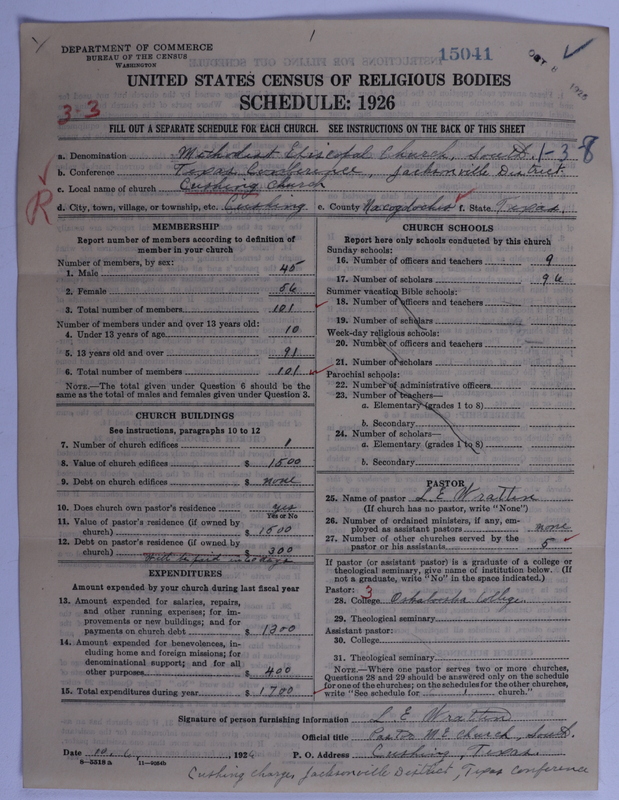 DEPARTMENT OF COMMERCE
BUREAU OF THE CENSUS
WASHINGTON
15041
OCT 8 1926
UNITED STATES CENSUS OF RELIGIOUS BODIES
SCHEDULE: 1926
3-3
FILL OUT A SEPARATE SCHEDULE FOR EACH CHURCH. SEE INSTRUCTIONS ON THE BACK OF THIS SHEET
a. Denomination Methodist Episcopal Church, South 1-3-8
b. Conference Texas Conference, Jacksonville District
c. Local name of church Cushing Church
R
d. City, town, village, or township, etc. Cushing e. County Nacogdoches f. State Texas.
MEMBERSHIP
Report number of members according to definition of
member in your church
Number of members, by sex:
1. Male 45
2. Female 56
3. Total number of members 101
Number of members under and over 13 years old:
4. Under 13 years of age 10
5. 13 years old and over 91
6. Total number of members 101
NOTE.—The total given under Question 6 should be the
same as the total of males and females given under Question 3.
CHURCH BUILDINGS
See instructions, paragraphs 10 to 12
7. Number of church edifices 1
8. Value of church edifices $ 1500
9. Debt on church edifices $ none
10. Does church own pastor's residence yes
Yes or No
11. Value of pastor's residence (if owned by
church) $ 1500
12. Debt on pastor's residence (if owned by
church) $ 300
Will be paid in 60 days
EXPENDITURES
Amount expended by your church during last fiscal year
13. Amount expended for salaries, repairs,
and other running expenses; for im-
provements or new buildings; and for
payments on church debt $ 1300
14. Amount expended for benevolences, in-
cluding home and foreign missions; for
denominational support; and for all
other purposes $ 400
15. Total expenditures during year $ 1700
CHURCH SCHOOLS
Report here only schools conducted by this church
Sunday schools:
16. Number of officers and teachers 9
17. Number of scholars 96
Summer vacation Bible schools:
18. Number of officers and teachers
19. Number of scholars
Week-day religious schools:
20. Number of officers and teachers
21. Number of scholars
Parochial schools:
22. Number of administrative officers
23. Number of teachers—
a. Elementary (grades 1 to 8)
b. Secondary
24. Number of scholars—
a. Elementary (grades 1 to 8)
b. Secondary
PASTOR
25. Name of pastor L. E. Wratten
(If church has no pastor, write "None")
26. Number of ordained ministers, if any, em-
ployed as assistant pastors none
27. Number of other churches served by the
pastor or his assistants 5
If pastor (or assistant pastor) is a graduate of a college or
theological seminary, give name of institution below. (If
not a graduate, write "No" in the space indicated.)
Pastor: 3
28. College Oskaloosa College
29. Theological seminary
Assistant pastor:
30. College
31. Theological seminary
NOTE.—Where one pastor serves two or more churches,
Questions 28 and 29 should be answered only on the schedule
for one of the churches; on the schedules for the other churches,
write "See schedule for church."
Signature of person furnishing information L E Wratten
Official title Pastor M E Church, South.
Date , 1926 P. O. Address Cushing, Texas.
8-5518a 11-9264b
Cushing charge, Jacksonville District, Texas Conference